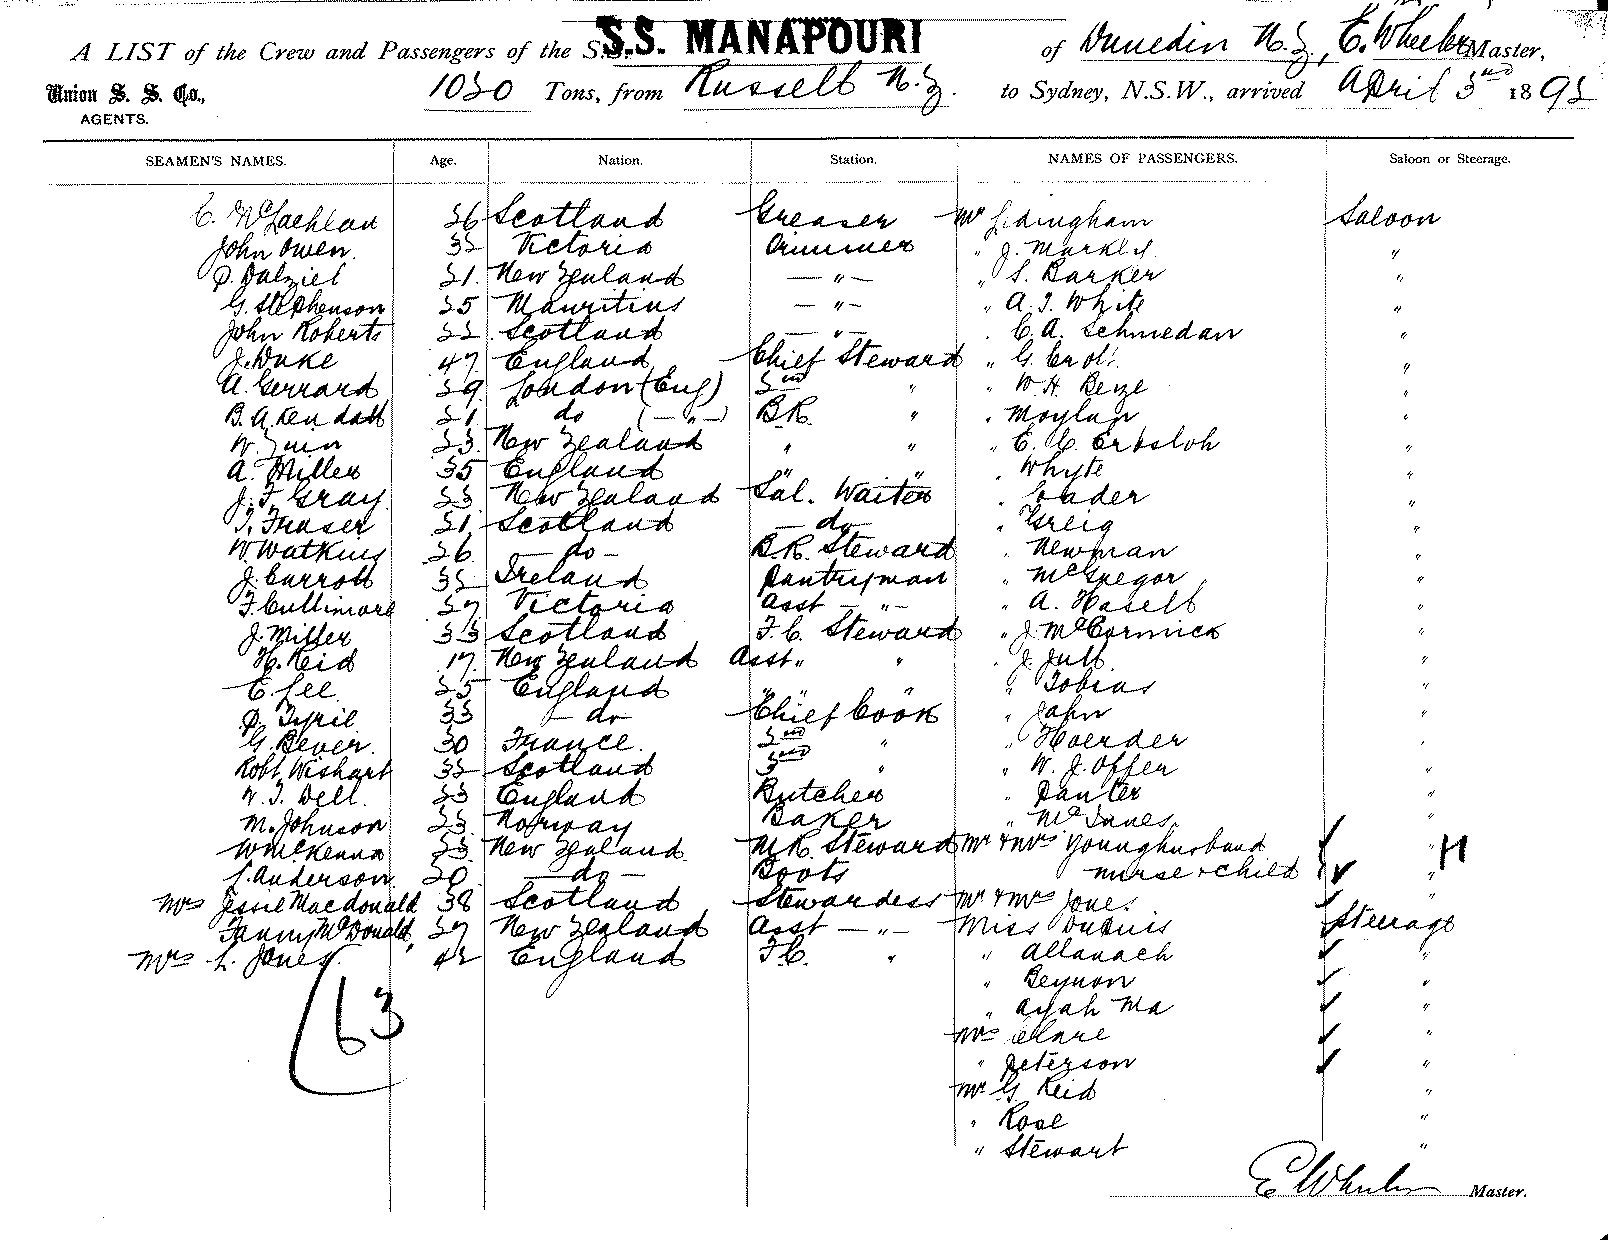 A LIST of the Crew and Passengers of the S.S. MANAPOURI of Dunedin N.Z, E. Wheeler Master,
Union S. S. Co., 1020 Tons, from Russell N.Z. to Sydney, N.S.W., arrived April 3rd 1892
AGENTS.
SEAMEN'S NAMES. Age. Nation. Station. NAMES OF PASSENGERS. Saloon or Steerage.
C. McLachlan 26 Scotland Greaser Mr Ledingham Saloon
John Owen. 32 Victoria Trimmer " J. Markly "
D. Dalziel 21. New Zealand — " — " S. Barker "
G. Stephenson 25 Mauritius — " — " A. J. White "
John Roberts 22 Scotland — " — " C. A. Schmedan "
J. Duke 47 England Chief Steward " G. "
A. Gerrard 29 London (Eng) 2nd " " W. H. "
B. A. Kendall 21 do (— " —) B.R. " " Moylan "
W. 23 New Zealand " " " E. C. Erbsloh "
A. Miller 35 England " " " Whyte "
J. T. Gray 23 New Zealand Sal. Waiter " Loader "
T. Fraser 21 Scotland — do " Greig "
W. Watkins 26 — do — B.R. Steward " Newman "
J. Carroll 32 Ireland Pantryman " McGregor "
F. Cullimore 27 Victoria Asst — " — " A. Haselt "
J. Miller 33 Scotland F.C. Steward " J. McCormick "
H. Reid 17 New Zealand Asst " " " J. Jull "
E. Lee 25 England " " " Tobias "
D. Tyril 33 — do Chief Cook " Jahn "
G. Bever. 30 France. 2nd " " Hoerder "
Robt. Wishart 32 Scotland 3rd " " W. J. Offer "
W. J. Dell. 23 England Butcher " Panter "
M. Johnson 23 Norway Baker " McInnes "
W McKenna 23 New Zealand M.R. Steward Mr & Mrs Younghusband " H
J. Anderson. 20 — do — Boots nurse & child "
Mrs Jessie Macdonald 38 Scotland Stewardess Mr & Mrs Jones
Fanny McDonald 27 New Zealand Asst — " — Miss Dupuis Steerage
Mrs L. Jones. 42 England F.C. " " Allanach "
" Beynon "
63 " Ayah Ma "
Mrs Clare "
" Peterson "
Mr G Reid "
" Rose "
" Stewart "
E Wheeler Master.